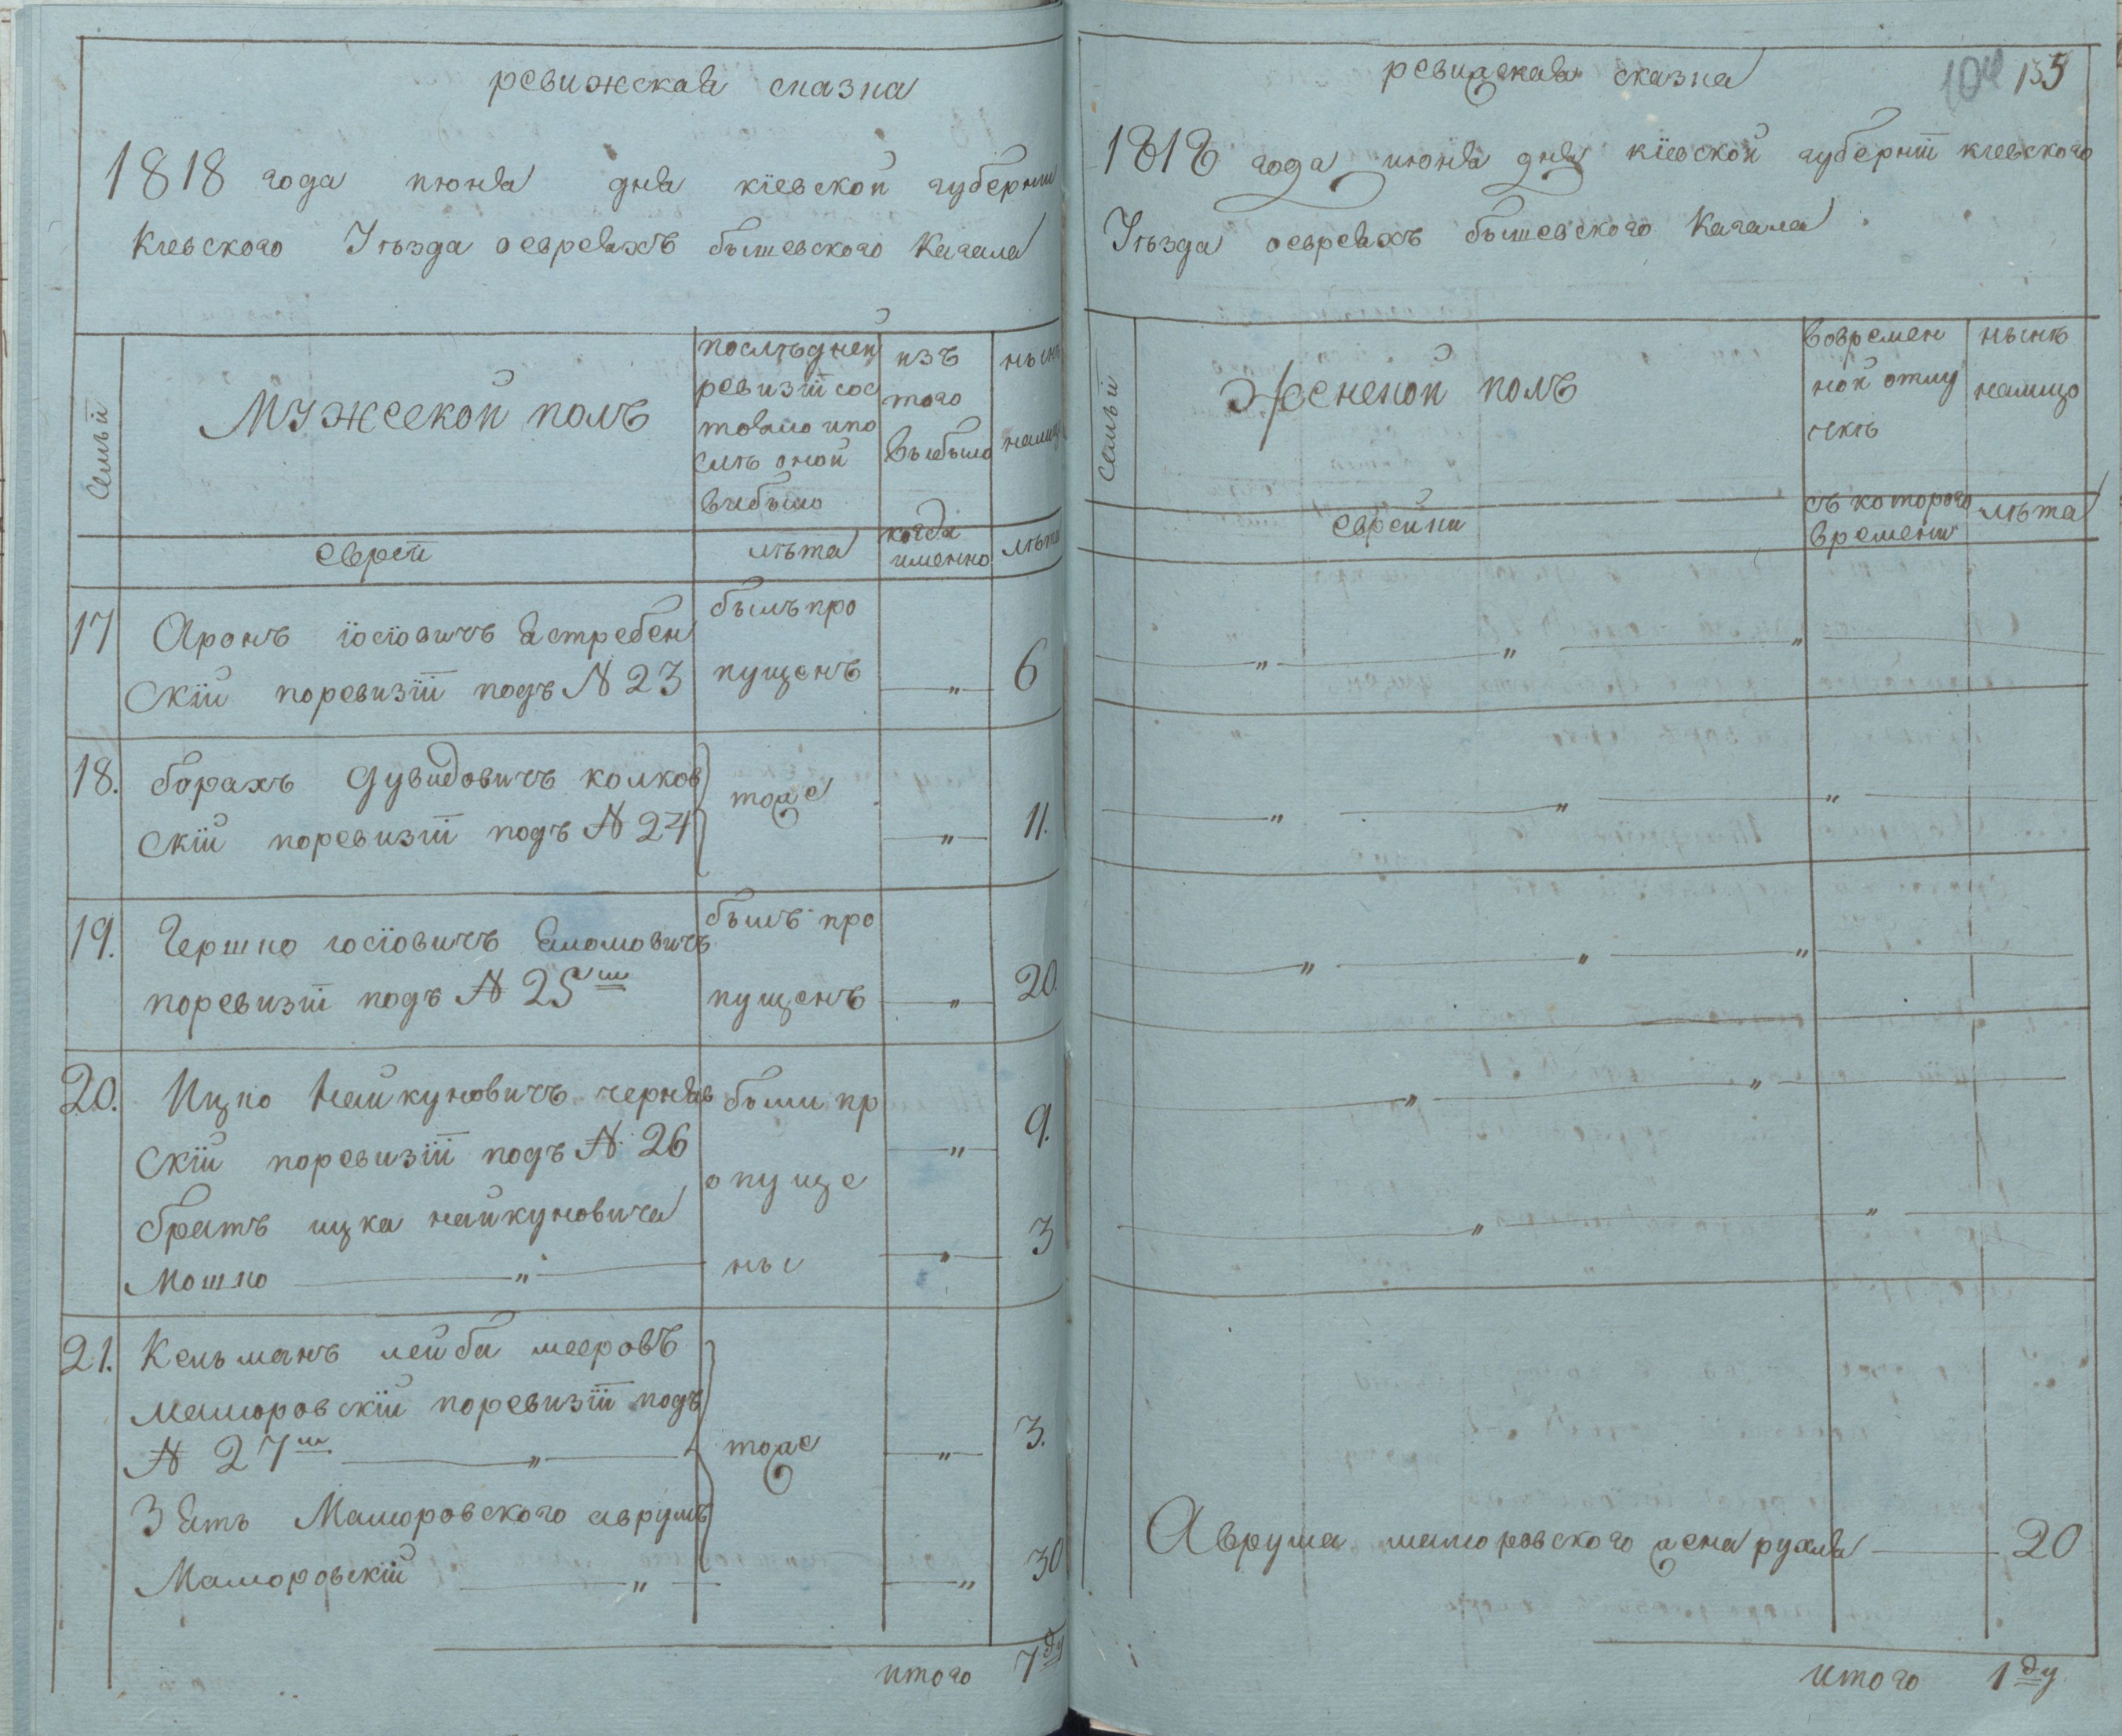 ревижская сказка
1818 года июня дня кіевской губерніи
Кіевского Уѣзда оевреяхъ бышевского Кагала
Семьи
Мужеской полъ
последней ревизіи сос тояло ипо слѣ оной вчебыло
изъ того выбыло
нынѣ налицо
евреи
лѣта
когда именно
лѣта
17 Аронъ іосіовичъ ястребен былъ про
скій поревизіи подъ N 23 пущенъ „ 6
18. борахъ дувидовичъ колков тоже
скій поревизіи подъ N 24 „ 11.
19. Гершко іосіовичъ былъ про
поревизіи подъ N 25ш пущенъ „ 20.
20. Ицко найкуновичъ черняв были пр 9.
скій поревизіи подъ N 26 „
братъ ицка найкуновича опуще
мошко „ ны „ 3
21. Кельманъ лейба мееровъ
маморовскій поревизіи подъ
N 27ш „ тоже „ 3.
Зять Маморовского аврумъ
Маморовскій „ „ 30
итого 7 ду
ревижская сказка 104 135
1818 года июня дня кіевской губерніи кіевского
Уѣзда оевреяхъ бышевского Кагала
Семьи
Женской полъ
вовремен ной отлу чкѣ
нынѣ налицо
еврейки
съ которого времени
лѣта
„ „ „
„ „ „
„ „ „
„ „
„ „
Аврума маморовского жена рухля 20
итого 1 ду